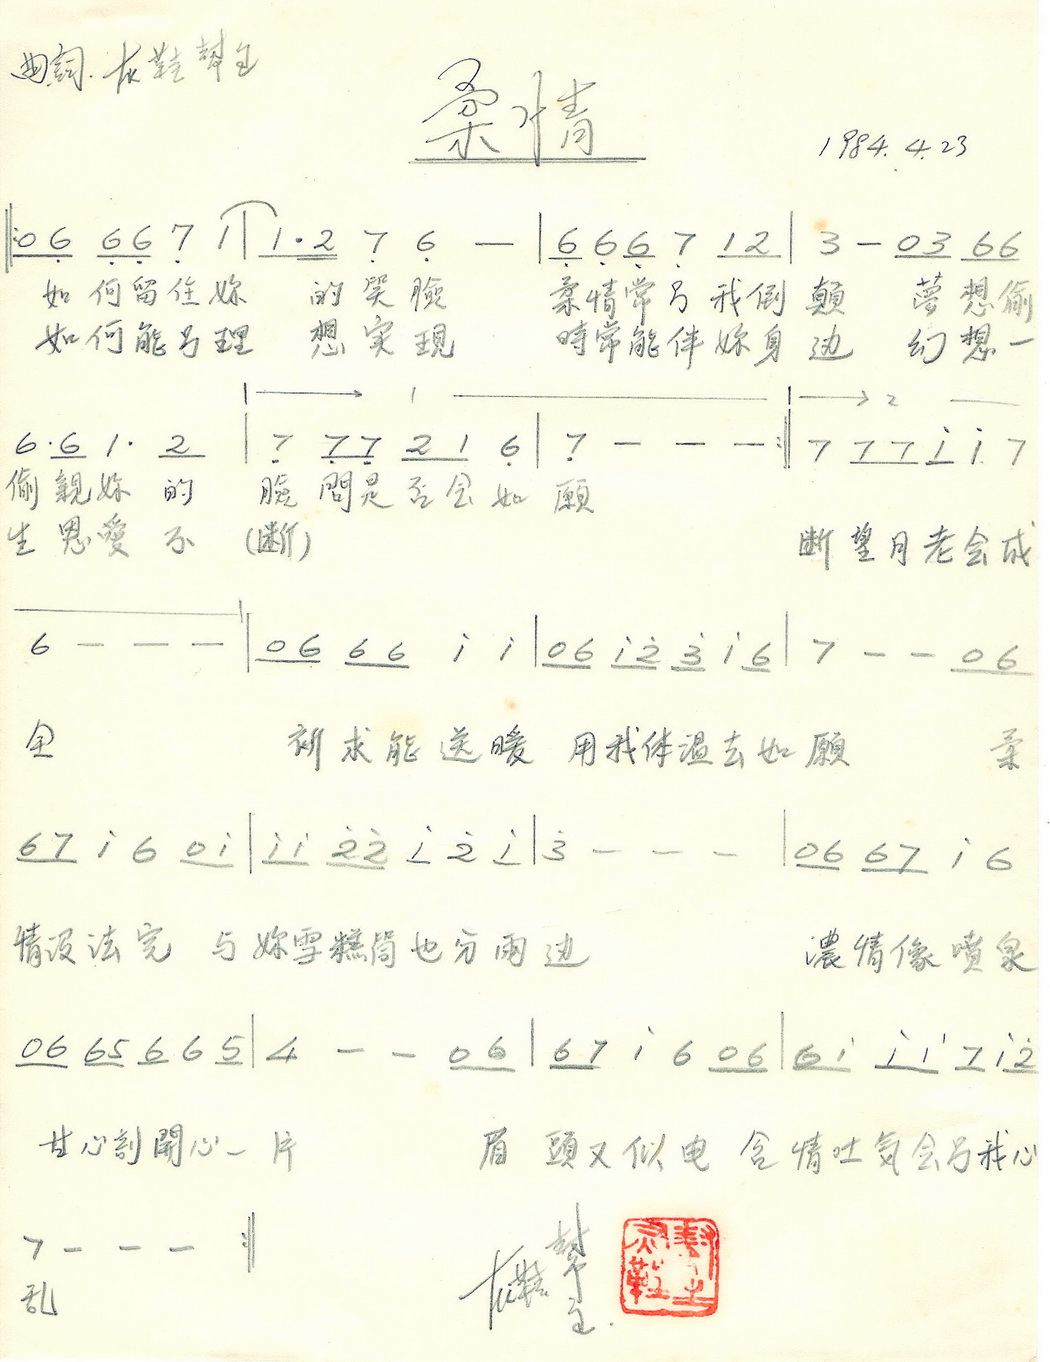 曲詞.灰鞋幫主
柔情
1984.4.23
‖:06 667 1 | 1·2 7 6 — | 666712 | 3 — 03 66
如何留住妳 的哭臉 柔情常另我倒顛 夢想偷
如何能另理 想实現 時常能伴妳身边 幻想一
1 2
6·6 1· 2 | 7 77 21 6 | 7 — — — :‖ 7 77i i 7
偷親妳的 臉問是否会如願
生恩愛不 (断) 断望月老会成
6 — — — | 06 66 i i | 06 i2 3 i 6 | 7 — — 06
全 祈求能送暖 用我体温去如願 柔
67 i 6 0i | ii 22 i 2 i | 3 — — — | 06 67 i 6
情没法完 与妳雪糕筒也分兩边 濃情像噴泉
06 65 6 6 5 | 4 — — 06 | 67 i 6 06 | 6i ii 7 i2
甘心割開心一片 眉頭又似电 含情吐気会另我心
7 — — — :‖
乱
灰鞋幫主.